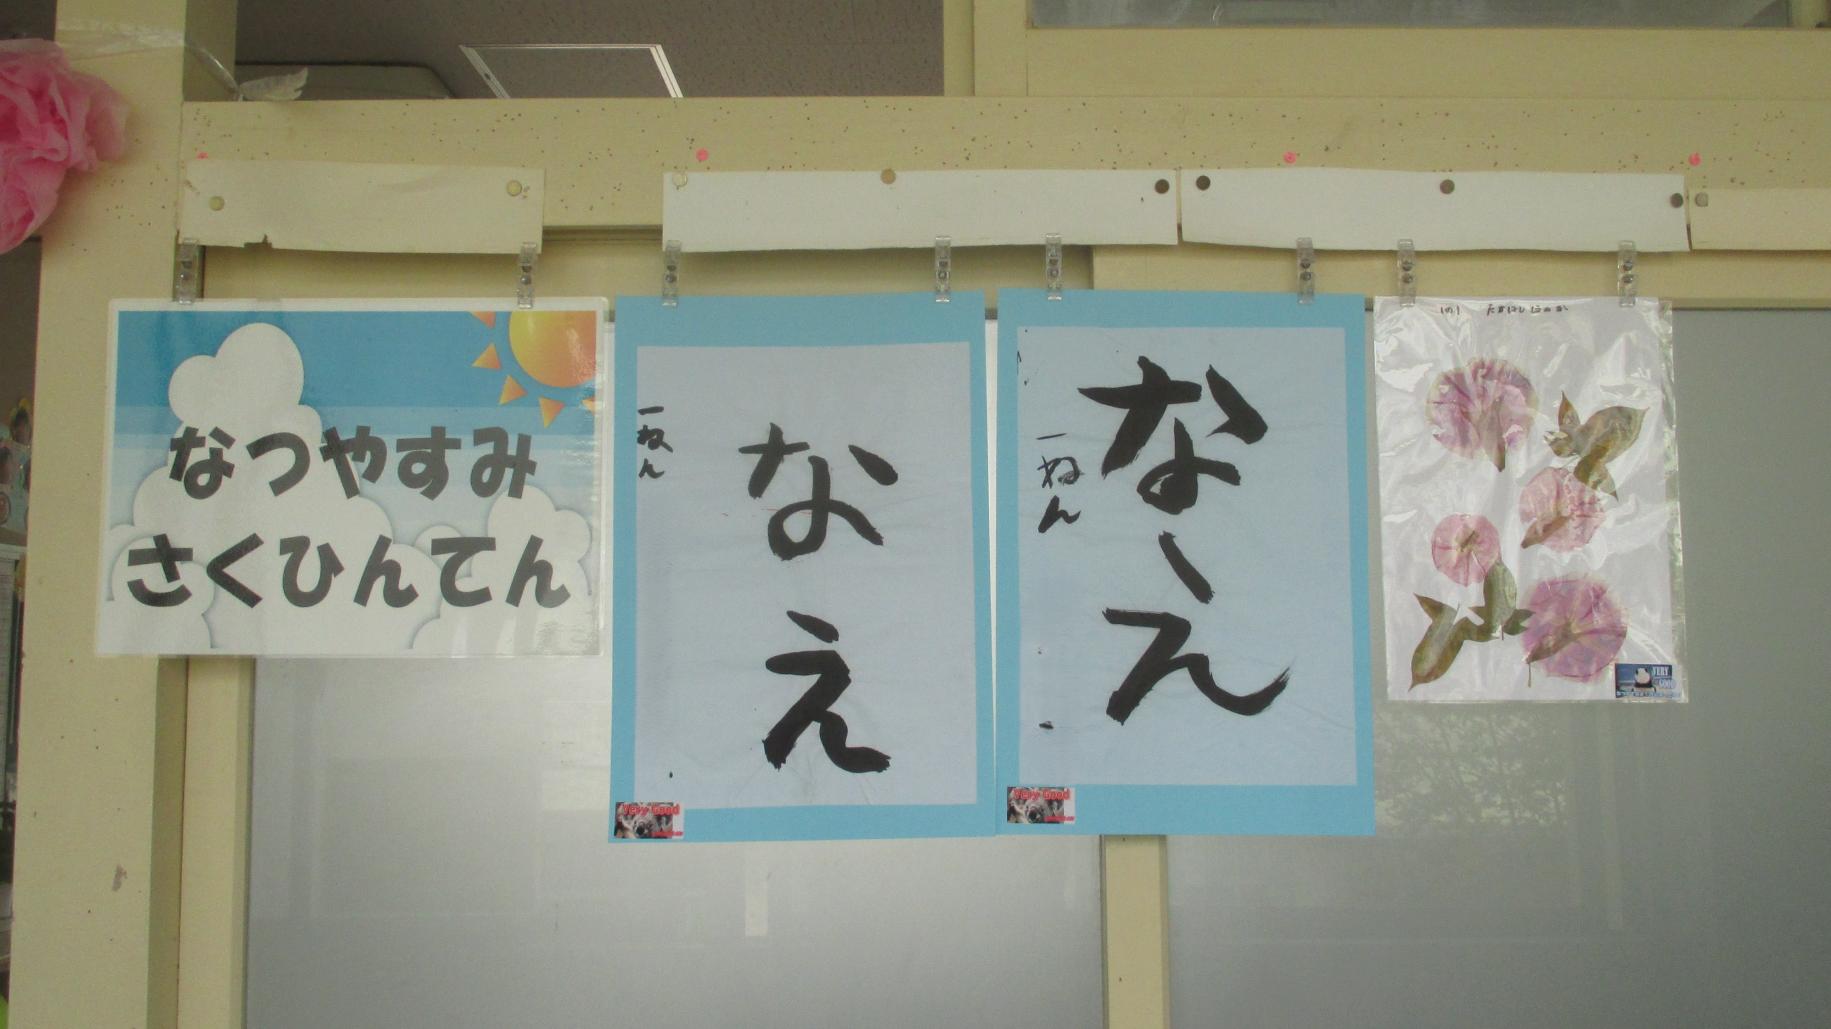 なつやすみ
さくひんてん
なえ
一ねん
Very Good
なえ
一ねん
Very Good
1の1
VERY
GOOD